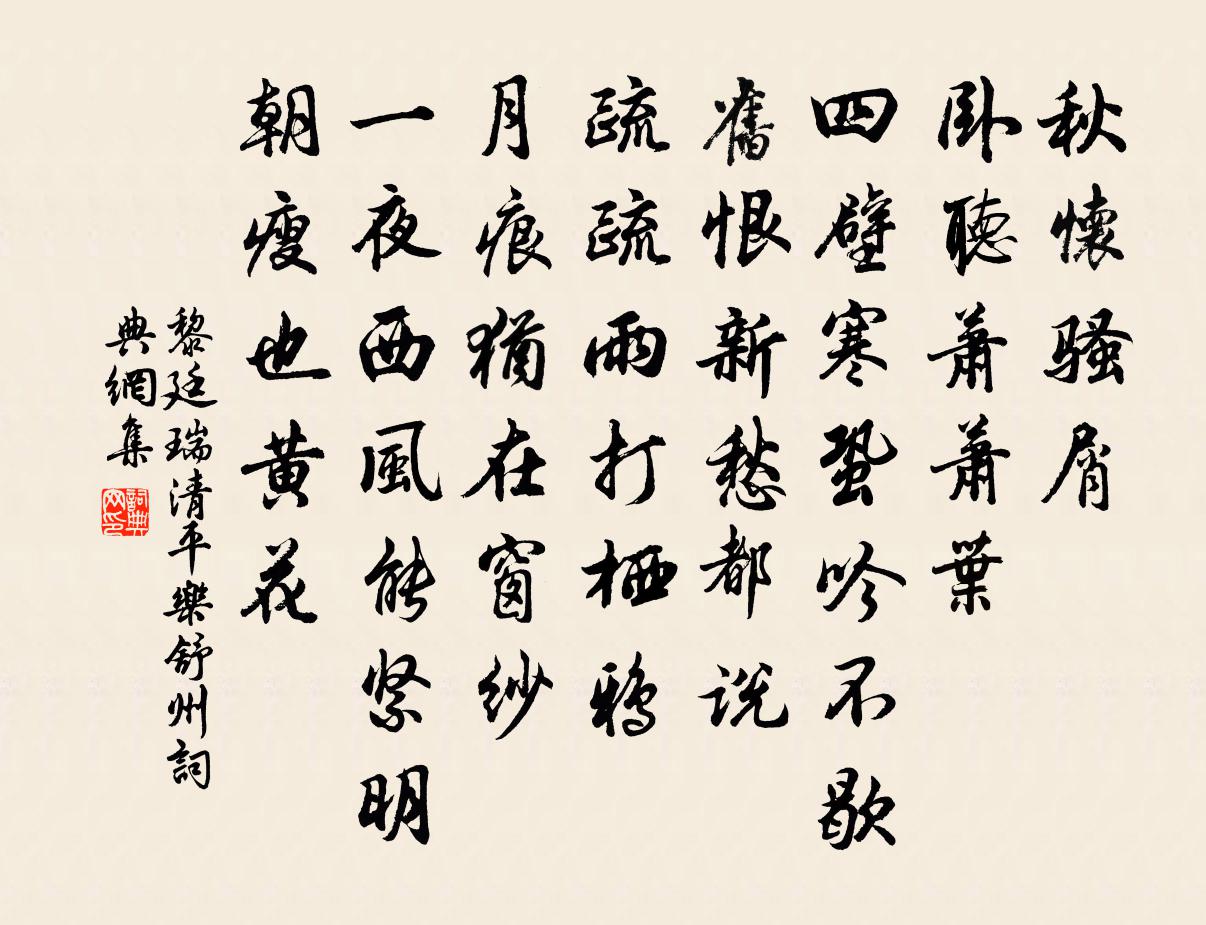 秋懷騷屑
卧聽蕭蕭葉
四壁寒蛩吟不歇
舊恨新愁都説
疏疏雨打栖鴉
月痕猶在窗紗
一夜西風能緊明
朝瘦也黄花
黎廷瑞清平樂舒州詞
典網集
詞典网印